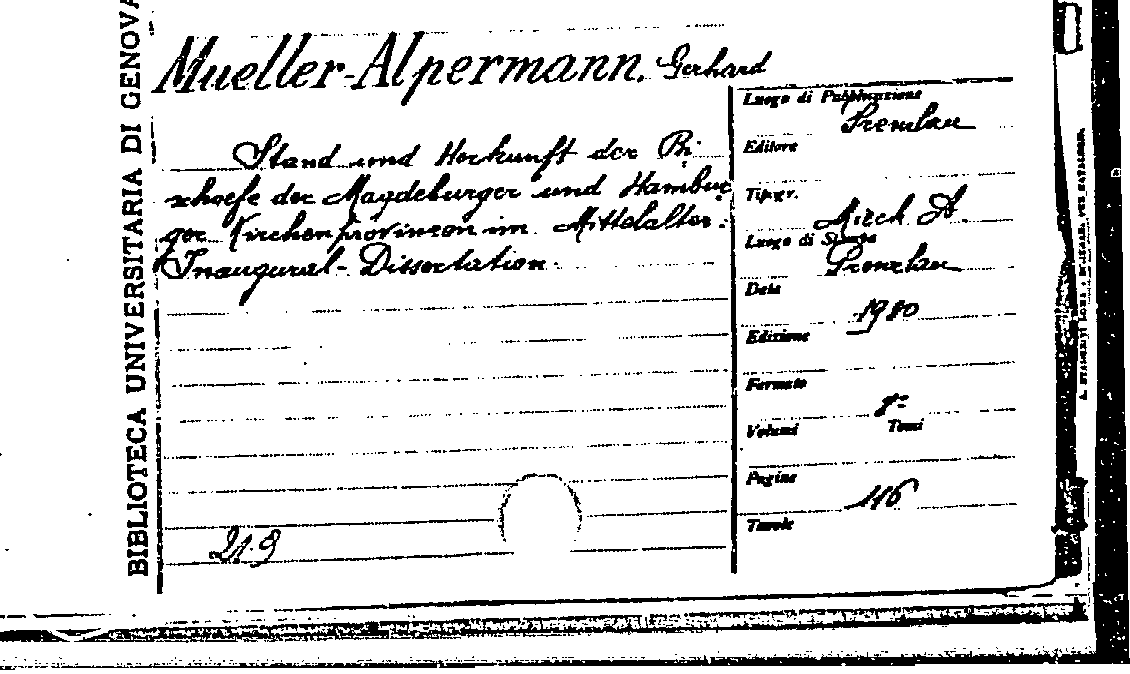 BIBLIOTECA UNIVERSITARIA DI GENOVA
Mueller-Alpermann, Gerhard
Stand und Herkunft der Bi
schoefe der Magdeburger und Hambur
ger Kirchenprovinzen im Mittelalter.
Inaugural-Dissertation.
21.9
Luogo di Pubblicazione
Prenzlau
Editore
Tipogr.
Mieck A.
Luogo di Stampa
Prenzlau
Data
1930
Edizione
Formato
8º
Volumi Tomi
Pagine
116
Tavole